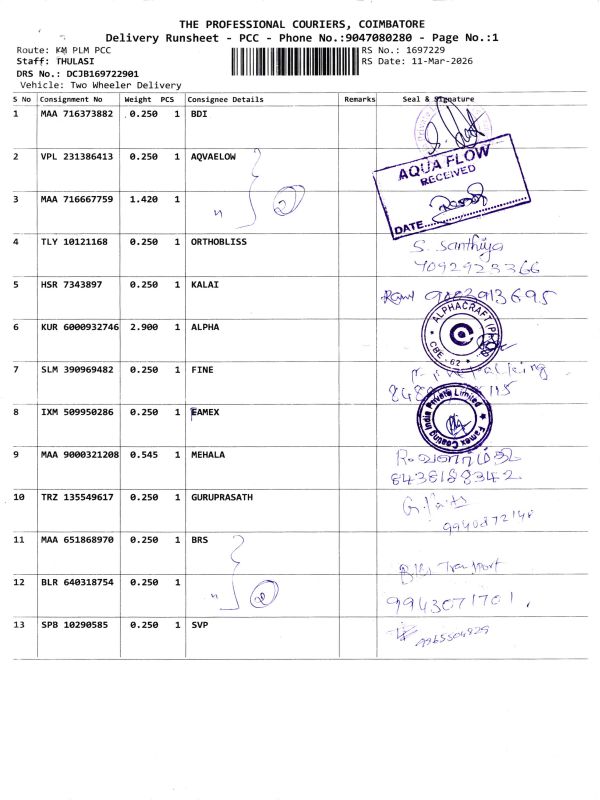 THE PROFESSIONAL COURIERS, COIMBATORE
Delivery Runsheet - PCC - Phone No.:9047080280 - Page No.:1
Route: KM PLM PCC
RS No.: 1697229
Staff: THULASI
RS Date: 11-Mar-2026
DRS No.: DCJB169722901
Vehicle: Two Wheeler Delivery
S No Consignment No Weight PCS Consignee Details Remarks Seal & Signature
1 MAA 716373882 0.250 1 BDI
2 VPL 231386413 0.250 1 AQVAELOW
AQUA FLOW
RECEIVED
3 MAA 716667759 1.420 1 " 2
DATE
4 TLY 10121168 0.250 1 ORTHOBLISS S. Santhiya
7092923366
5 HSR 7343897 0.250 1 KALAI
6 KUR 6000932746 2.900 1 ALPHA ALPHACRAFT CBE-62
7 SLM 390969482 0.250 1 FINE
8 IXM 509950286 0.250 1 EAMEX Famex Coating India Private Limited
9 MAA 9000321208 0.545 1 MEHALA
8438188342
10 TRZ 135549617 0.250 1 GURUPRASATH
11 MAA 651868970 0.250 1 BRS Transport
12 BLR 640318754 0.250 1 " 2 9943071701
13 SPB 10290585 0.250 1 SVP